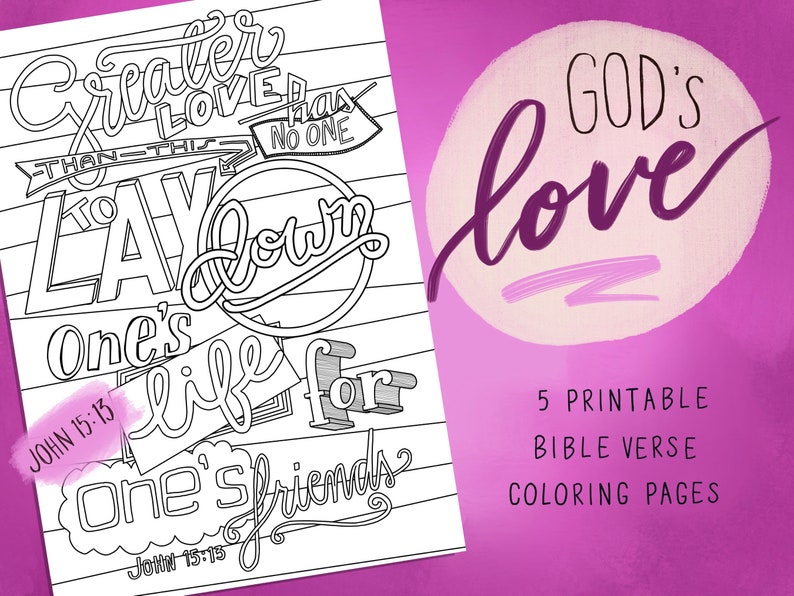 Greater
LOVE has
NO ONE
-THAN-THIS
TO
LAY
down
One's
life for
one's friends
JOHN 15:13
JOHN 15:13
GOD'S
love
5 PRINTABLE
BIBLE VERSE
COLORING PAGES